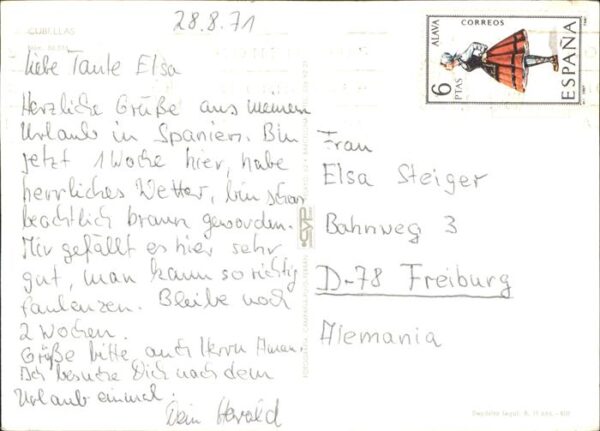 28.8.71
CUBILLAS
Liebe Tante Elsa
Herzliche Grüße aus meinem
Urlaub in Spanien. Bin
jetzt 1 Woche hier, habe
herrliches Wetter, bin schon
beachtlich braun geworden.
Mir gefällt es hier sehr
gut, man kann so richtig
faulenzen. Bleibe noch
2 Wochen.
Grüße bitte auch Herrn
Ich besuche Dich nach dem
Urlaub einmal.
Dein Harald
ALAVA
CORREOS
6
PTAS
ESPAÑA
Frau
Elsa Steiger
Bahnweg 3
D-78 Freiburg
Alemania
Depósito Legal. B.